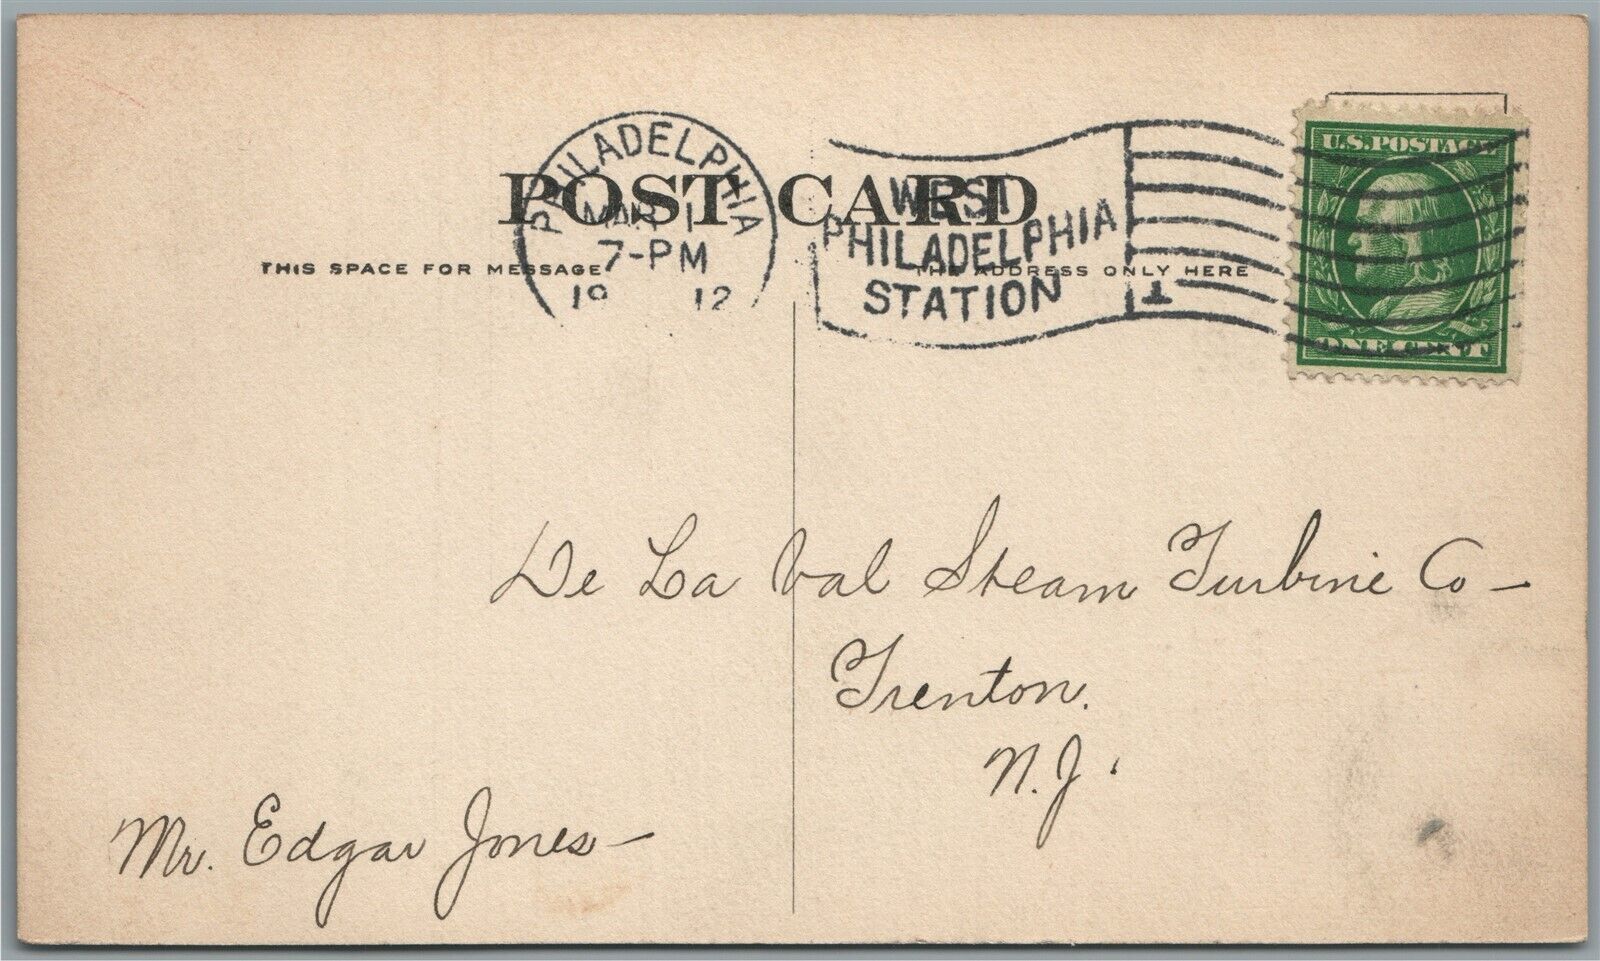 POST CARD
PHILADELPHIA
MAR 1
7-PM
1912
WEST
PHILADELPHIA
STATION
1
U.S. POSTAGE
ONE CENT
THIS SPACE FOR MESSAGE
THE ADDRESS ONLY HERE
De La Val Steam Turbine Co –
Trenton.
N. J.
Mr. Edgar Jones –